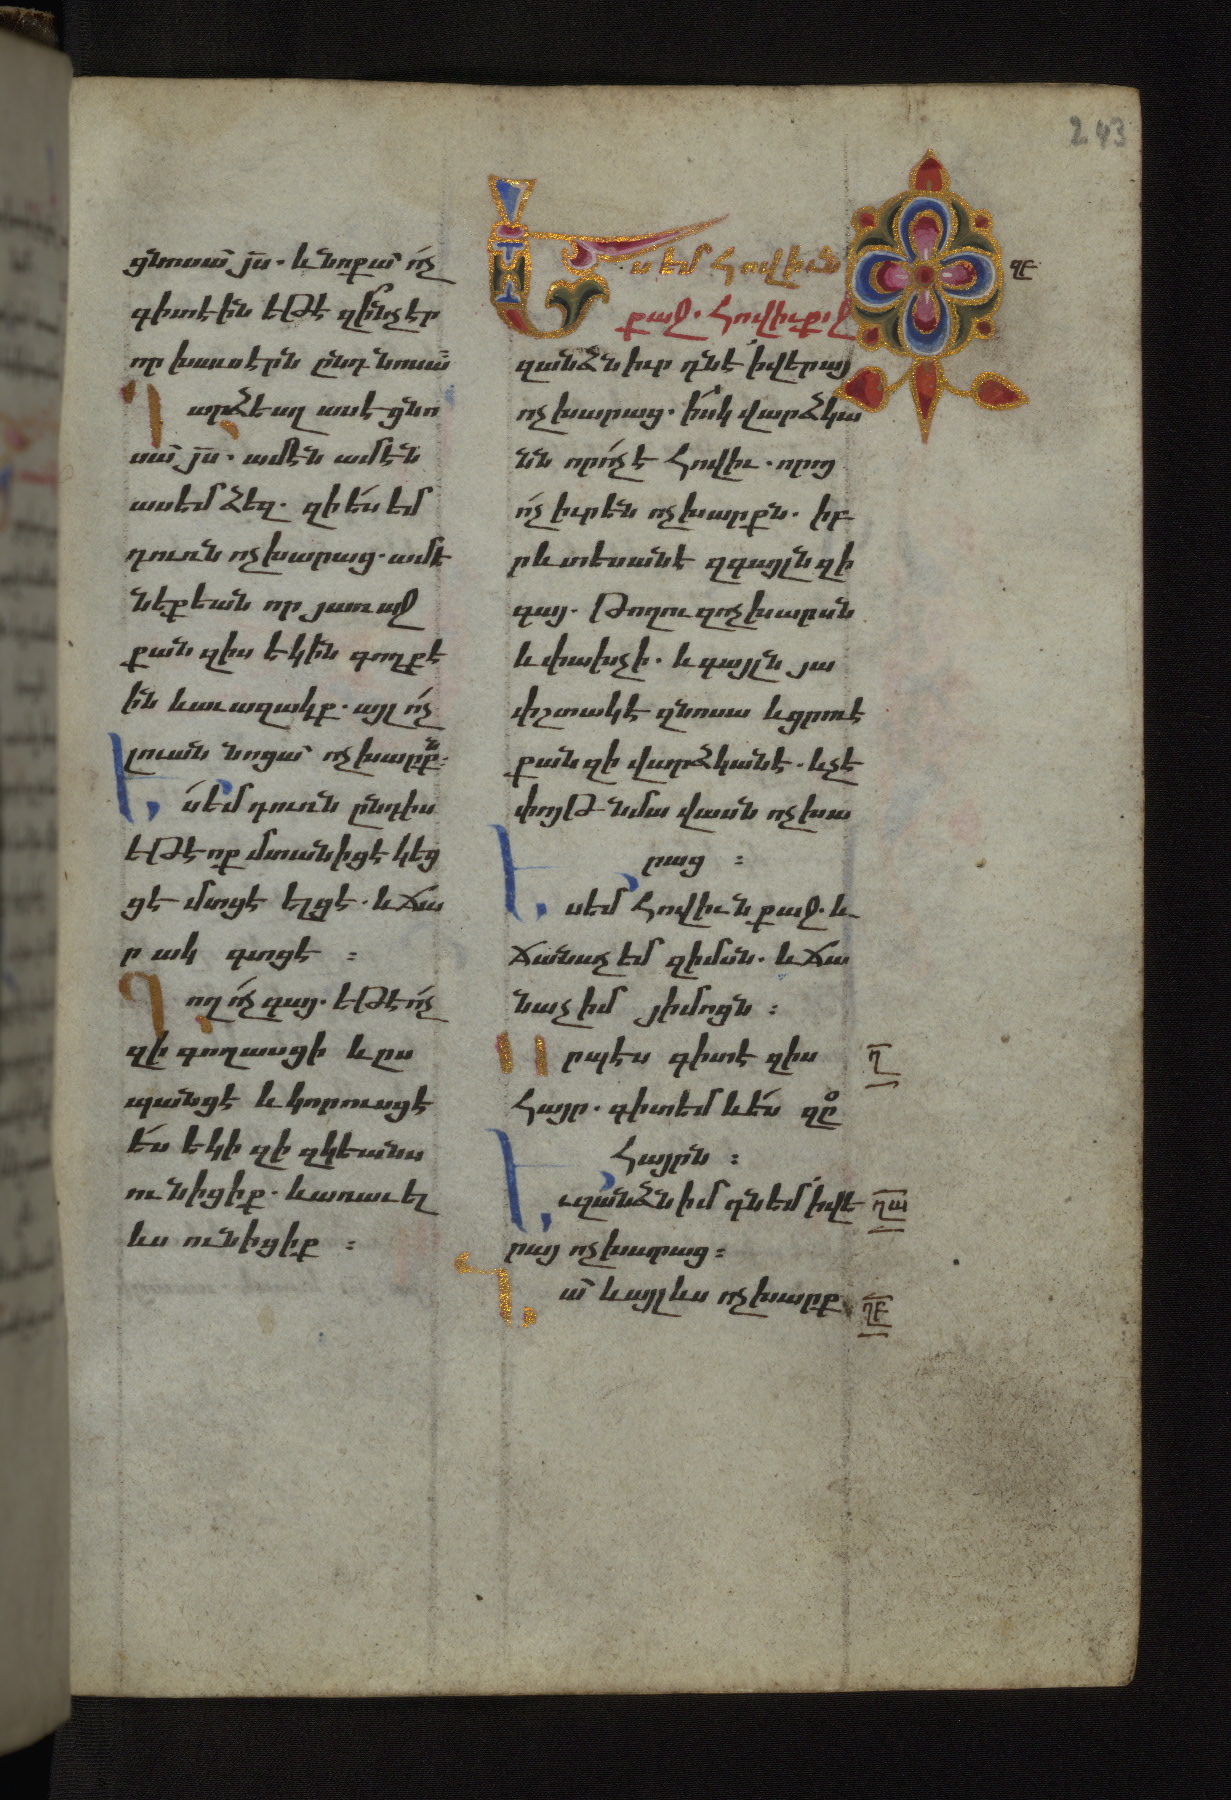 243
ցնոսա՝ յս. և նոքա՝ ոչ
գիտէին եթէ զինչ էր
որ խաւսէրն ընդ նոսա՝
Դարձեալ ասէ ցնո
սա՝ յս. ամէն ամէն
ասեմ ձեզ. զի ես եմ
դուռն ոչխարաց. ամե
նեքեան որ յառաջ
քան զիս եկին գողք է
ին և աւազակք. այլ ոչ
լուան նոցա՝ ոչխարքն:
Ես եմ դուռն ընդ իս
եթէ ոք մտանիցէ կեց
ցէ մտցէ ելցէ. և ճա
րակ գտցէ :
Գող ոչ գայ. եթէ ոչ
զի գողասցի և ըս
պանցէ և կորուսցէ
ես եկի զի զկեանս
ունիցիք. և առաւել
ևս ունիցիք :
Ես եմ հովիւն
քաջ. հովիւ քաջ
զանձն իւր դնէ ի վերայ
ոչխարաց. իսկ վարձկա
նն որ ոչ է հովիւ. որոց
ոչ իւրեն ոչխարքն. իբ
րև տեսանէ զգայլն զի
գայ. թողու զոչխարսն
և փախչի. և գայլն յա
փշտակէ զնոսա և ցրուէ
քանզի վարձկան է. և չէ
փոյթ նմա վասն ոչխա
րաց :
Ես եմ հովիւն քաջ. և
ճանաչեմ զիմսն. և ճա
նաչիմ յիմոցն :
Որպէս գիտէ զիս
հայր. գիտեմ և ես զը
հայրն :
Եւ զանձն իմ դնեմ ի վե
րայ ոչխարաց :
Այլ և այլ ևս ոչխարք
ղբ
ղ
ղա
ղբ